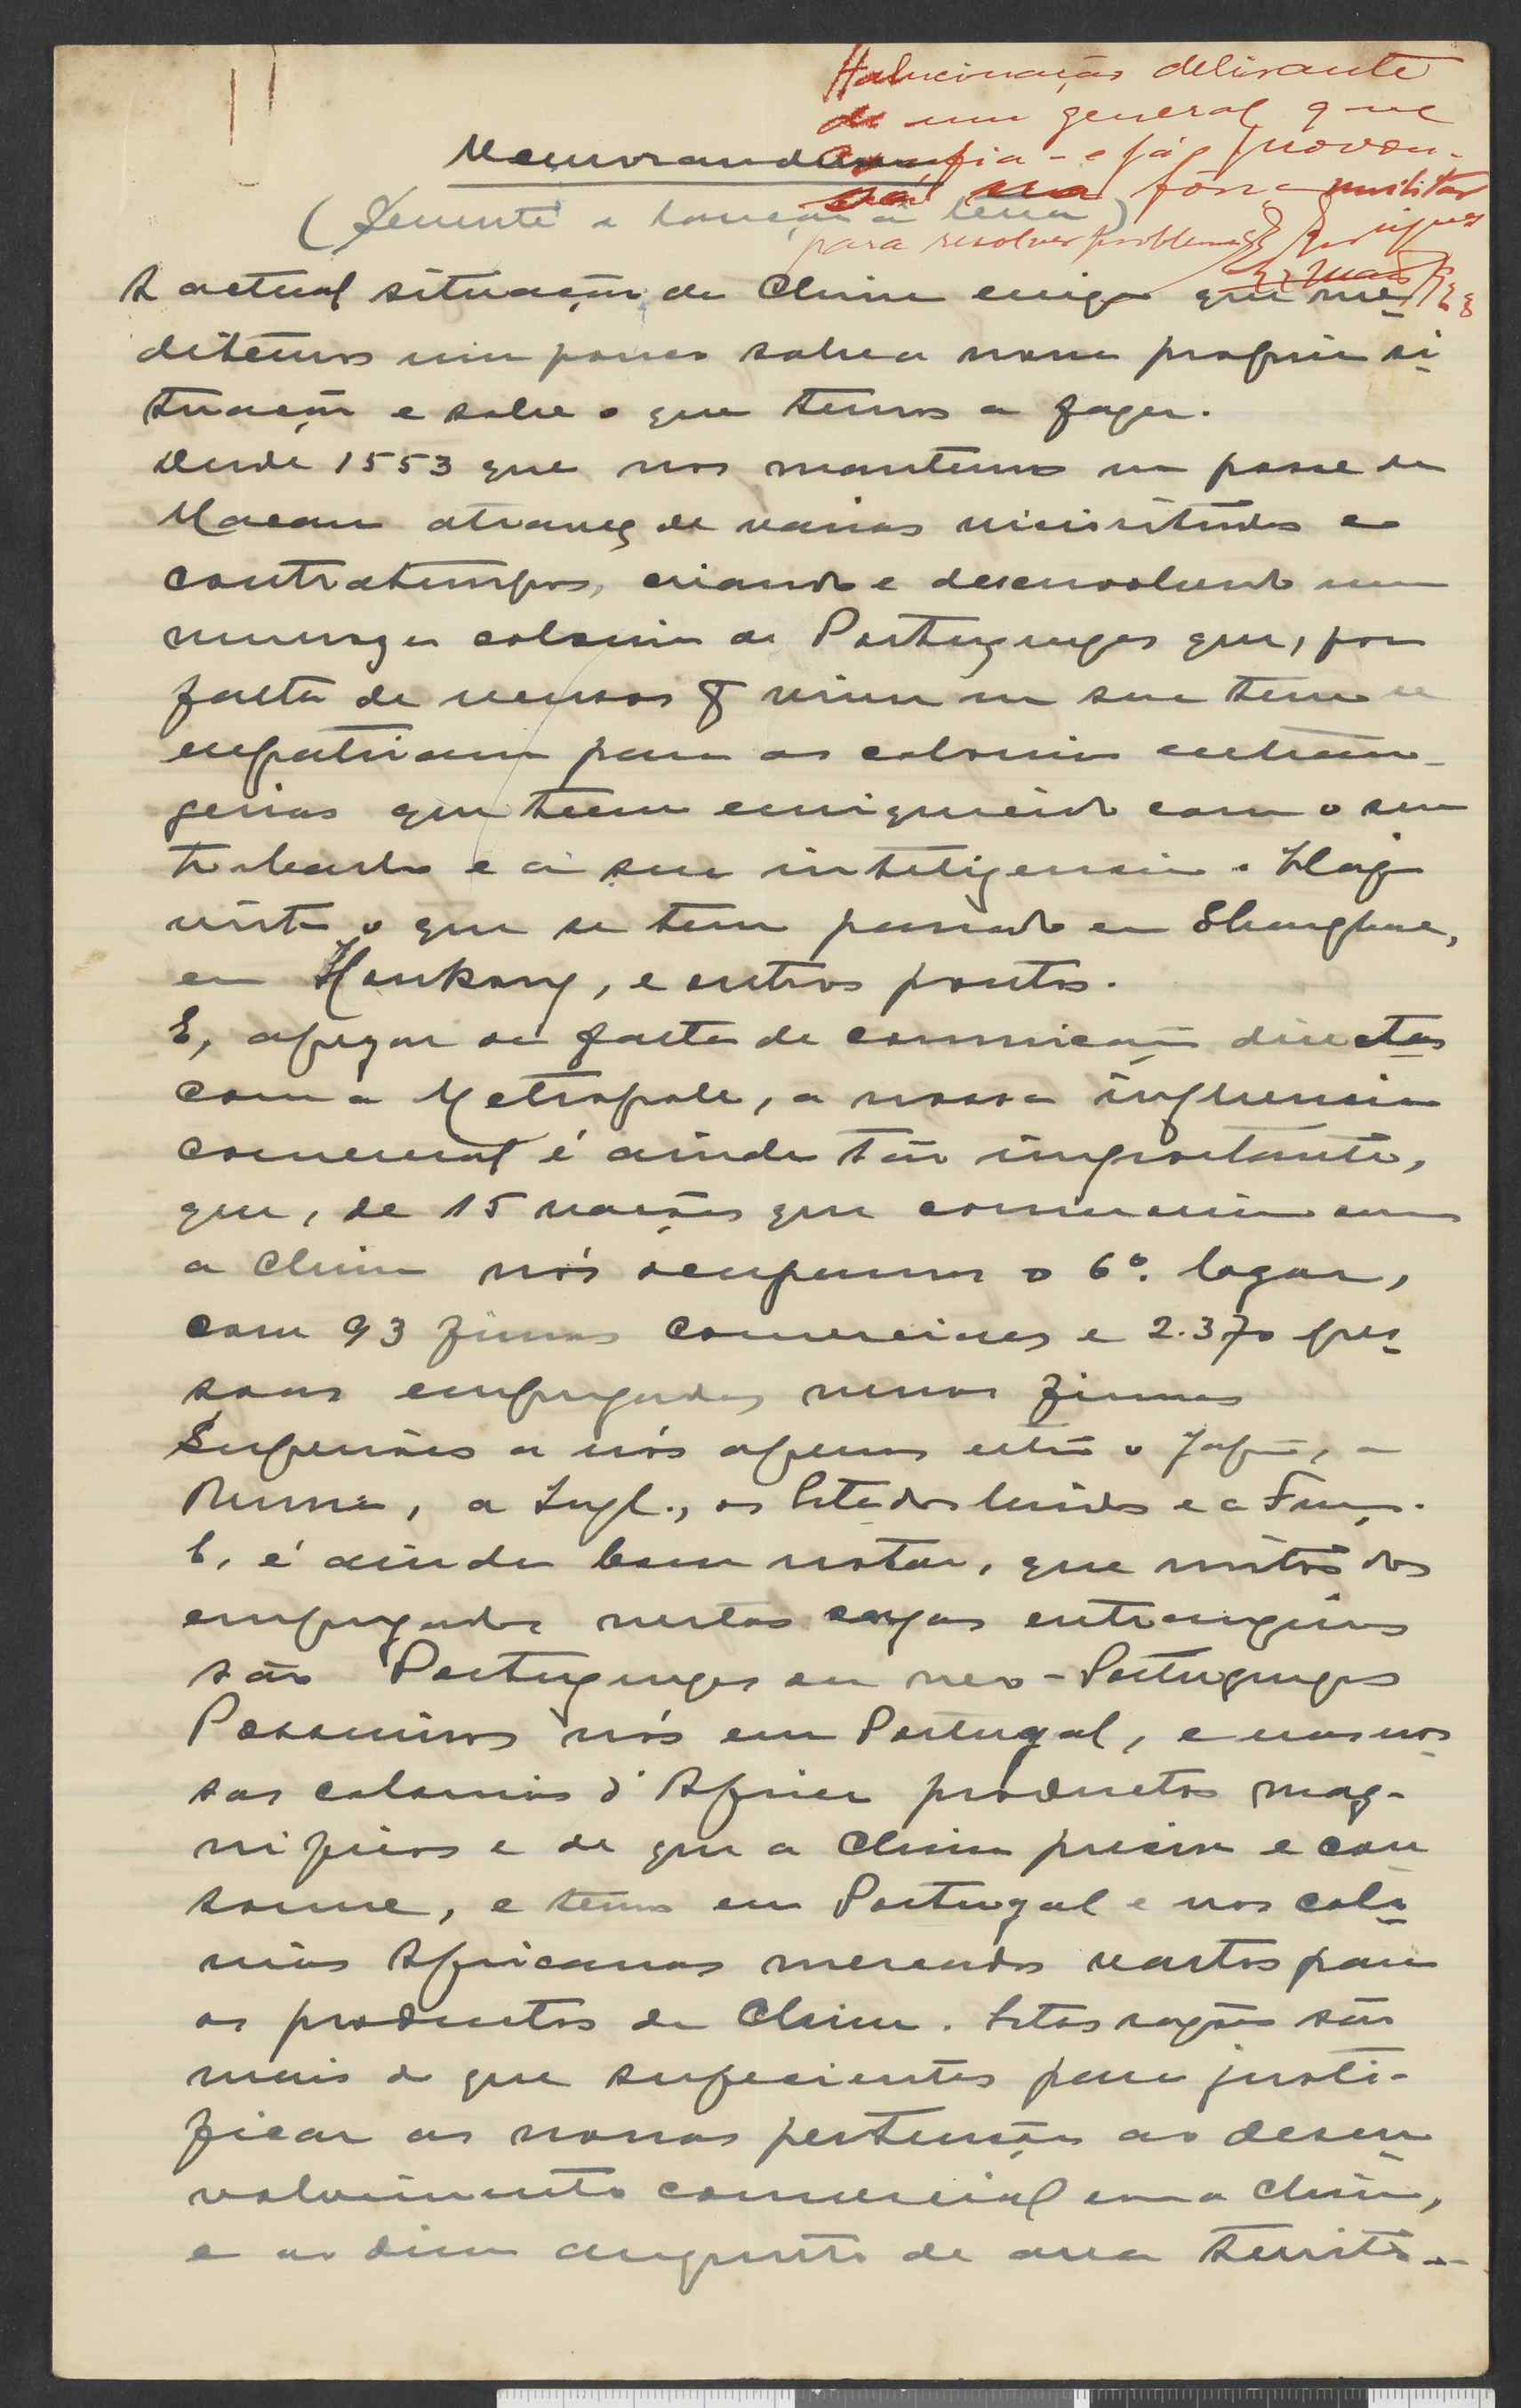 Halucinação delirante
de um general que
confia - e já o provou -
na força militar
para resolver problemas
Memorandum
(Semente a lançar à terra)
A actual situação da China exige que me-
ditemos um pouco sobre a nossa propria si-
tuação e sobre o que temos a fazer.
Desde 1553 que nos mantemos na posse de
Macau atravez de varias vicissitudes e
contratempos, criando e desenvolvendo uma
numerosa colonia de Portuguezes que, por
falta de recursos p.ª viver na sua terra se
expatriam para as colonias extran-
geiras que teem enriquecido com o seu
trabalho e a sua inteligencia. Haja
vista o que se tem passado em Shanghae,
em Honkong, e outros pontos.
E, apezar da falta de comunicações directas
com a Metropole, a nossa influencia
comercial é ainda tão importante,
que, de 15 nações que comerceiam com
a China nós ocupamos o 6º. logar,
com 93 firmas comerciaes e 2.370 pes-
soas empregadas nessas firmas
Superiores a nós apenas estão o Japão, a
Russia, a Ingl., os Estados Unidos e a França.
E, é ainda bom notar, que muitos dos
empregados nestas casas extrangeiras
são Portuguezes ou neo-Portuguezes
Possuimos nós em Portugal, e nas nos-
sas colonias d'Africa productos mag-
nificos e de que a China precisa e con
some, e temos em Portugal e nas colo-
nias Africanas mercados vastos para
os productos da China. Estas razões são
mais do que suficientes para justi-
ficar as nossas pertensões ao desen-
volvimento comercial com a China,
e ao dum augmento de area territo-